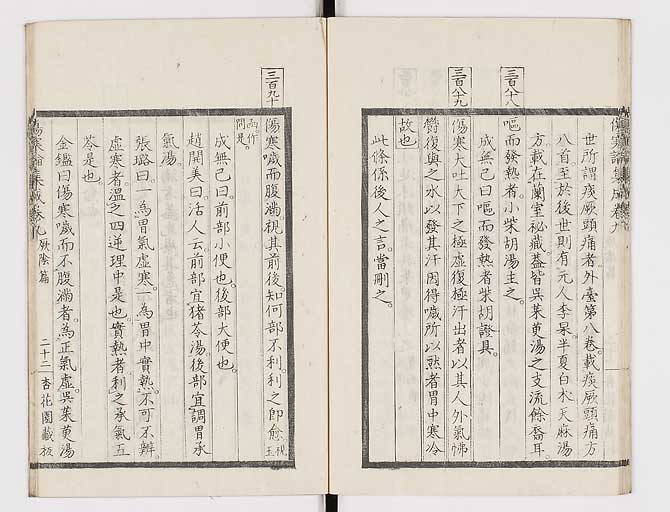 傷寒論集成卷九
世所謂痰厥頭痛者外臺第八卷載痰厥頭痛方
八首至於後世則有元人李杲半夏白朮天麻湯
方載在蘭室祕藏蓋皆吳茱萸湯之支流餘裔耳
三百八十八
嘔而發熱者小柴胡湯主之
成無己曰嘔而發熱者柴胡證具
三百八十九
傷寒大吐大下之極虛復極汗出者以其人外氣怫
鬱復與之水以發其汗因得噦所以然者胃中寒冷
故也
此條係後人之言當刪之
三百九十
傷寒噦而腹滿視其前後知何部不利利之即愈
問是
成無己曰前部小便也後部大便也
趙開美曰活人云前部宜猪苓湯後部宜調胃承
氣湯
張璐曰一為胃氣虛寒一為胃中實熱不可不辨
虛寒者溫之四逆理中是也實熱者利之承氣五
苓是也
金鑑曰傷寒噦而不腹滿者為正氣虛吳茱萸湯
傷寒論集成卷九 厥陰篇 二十二 杏花園藏板